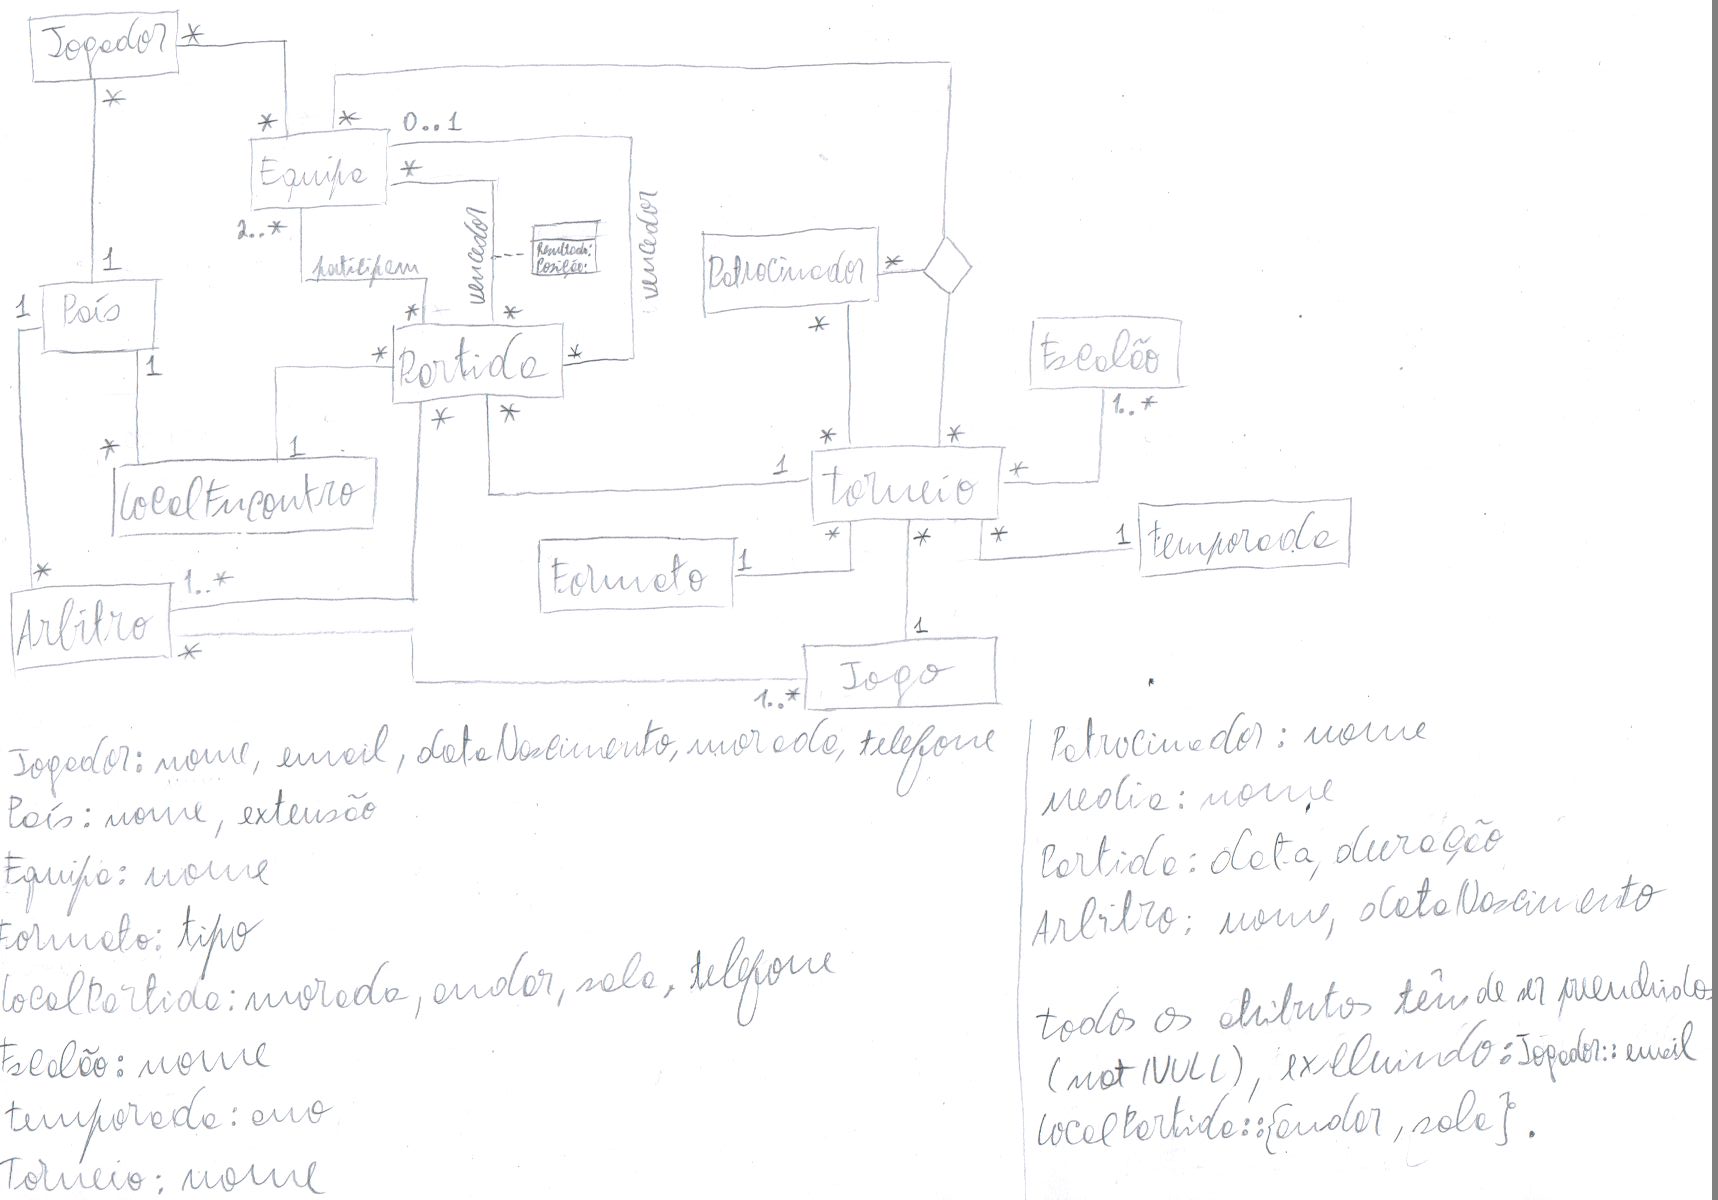 Jogador
*
*
*
*
0..1
Equipa
*
2..*
participam
vencedor
Resultado:
Posição:
vencedor
*
*
*
*
Partida
*
*
1
País
1
1
*
1
LocalEncontro
*
1..*
Arbitro
*
Patrocinador
*
*
*
*
1
torneio
*
*
*
*
Escalão
1..*
1
temporada
Formato
1
1
Jogo
1..*
Jogador: nome, email, dataNascimento, morada, telefone
País: nome, extensão
Equipa: nome
Formato: tipo
LocalPartida: morada, andar, sala, telefone
Escalão: nome
temporada: ano
Torneio: nome
Patrocinador: nome
media: nome
Partida: data, duração
Arbitro: nome, dataNascimento
todos os atributos têm de ser preenchidos
(not NULL), excluindo: Jogador::email
LocalPartida::{andar, sala}.